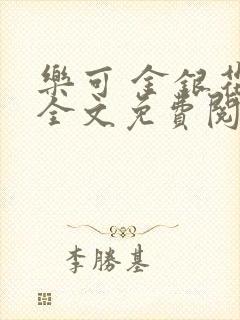 樂可 金銀花
全文免費閱
李勝基